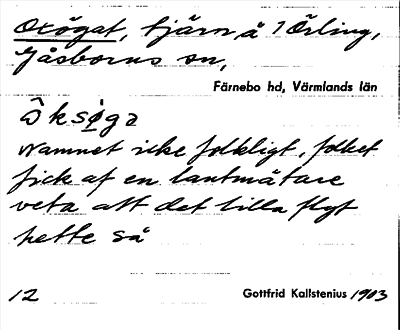 Oxögat, tjärn, å 1 Örling,
Gåsborns sn,
Färnebo hd, Värmlands län
ôksøga
Namnet icke folkligt, folket
fick af en lantmätare
veta att det lilla flyt
hette så
12 Gottfrid Kallstenius 1903